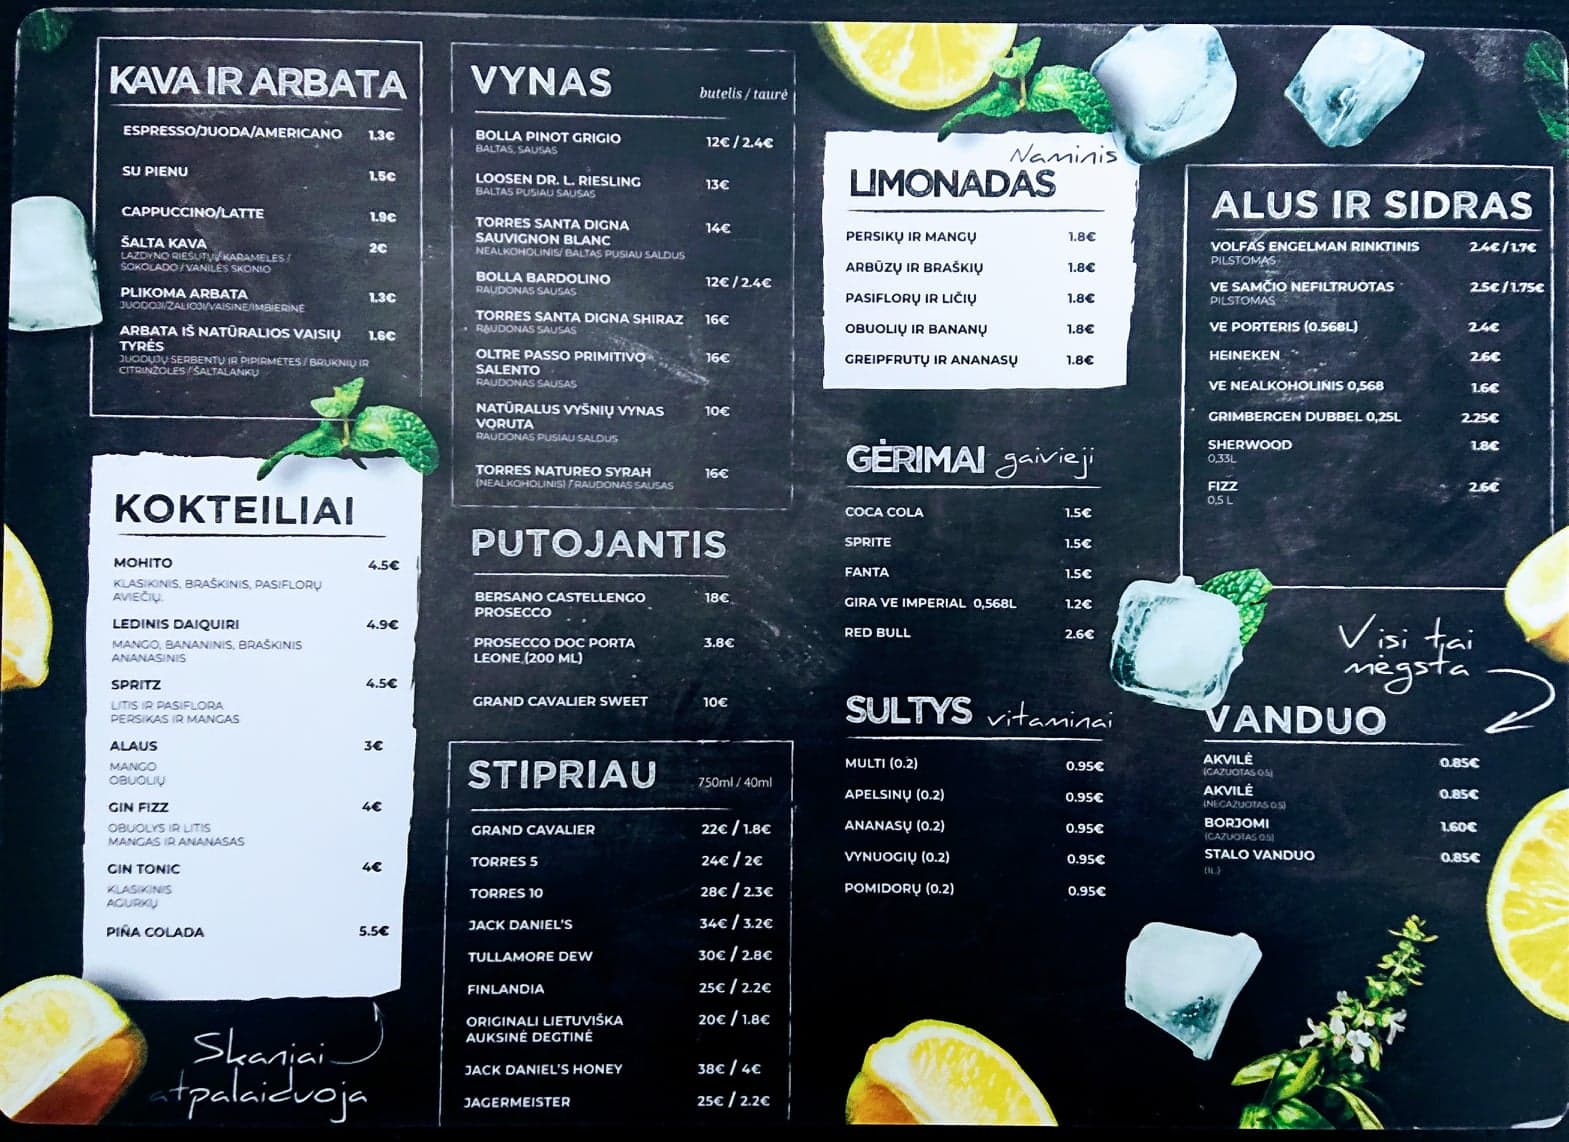 KAVA IR ARBATA
ESPRESSO/JUODA/AMERICANO 1.3€
SU PIENU 1.5€
CAPPUCCINO/LATTE 1.9€
ŠALTA KAVA 2€
LAZDYNO RIEŠUTŲ/KARAMELĖS/
ŠOKOLADO/VANILĖS SKONIO
PLIKOMA ARBATA 1.3€
JUODOJI/ŽALIOJI/VAISINĖ/IMBIERINĖ
ARBATA IŠ NATŪRALIOS VAISIŲ 1.6€
TYRĖS
JUODŲJŲ SERBENTŲ IR PIPIRMĖTĖS / BRUKNIŲ IR
CITRINŽOLĖS / ŠALTALANKŲ
KOKTEILIAI
MOHITO 4.5€
KLASIKINIS, BRAŠKINIS, PASIFLORŲ
AVIEČIŲ.
LEDINIS DAIQUIRI 4.9€
MANGO, BANANINIS, BRAŠKINIS
ANANASINIS
SPRITZ 4.5€
LITIS IR PASIFLORA
PERSIKAS IR MANGAS
ALAUS 3€
MANGO
OBUOLIŲ
GIN FIZZ 4€
OBUOLYS IR LITIS
MANGAS IR ANANASAS
GIN TONIC 4€
KLASIKINIS
AGURKŲ
PIÑA COLADA 5.5€
Skaniai
atpalaiduoja
VYNAS butelis / taurė
BOLLA PINOT GRIGIO 12€ / 2.4€
BALTAS, SAUSAS
LOOSEN DR. L. RIESLING 13€
BALTAS PUSIAU SAUSAS
TORRES SANTA DIGNA 14€
SAUVIGNON BLANC
NEALKOHOLINIS/ BALTAS PUSIAU SALDUS
BOLLA BARDOLINO 12€ / 2.4€
RAUDONAS SAUSAS
TORRES SANTA DIGNA SHIRAZ 16€
RAUDONAS SAUSAS
OLTRE PASSO PRIMITIVO 16€
SALENTO
RAUDONAS SAUSAS
NATŪRALUS VYŠNIŲ VYNAS 10€
VORUTA
RAUDONAS PUSIAU SALDUS
TORRES NATUREO SYRAH 16€
(NEALKOHOLINIS) / RAUDONAS SAUSAS
PUTOJANTIS
BERSANO CASTELLENGO 18€
PROSECCO
PROSECCO DOC PORTA 3.8€
LEONE (200 ML)
GRAND CAVALIER SWEET 10€
STIPRIAU 750ml / 40ml
GRAND CAVALIER 22€ / 1.8€
TORRES 5 24€ / 2€
TORRES 10 28€ / 2.3€
JACK DANIEL'S 34€ / 3.2€
TULLAMORE DEW 30€ / 2.8€
FINLANDIA 25€ / 2.2€
ORIGINALI LIETUVIŠKA 20€ / 1.8€
AUKSINĖ DEGTINĖ
JACK DANIEL'S HONEY 38€ / 4€
JAGERMEISTER 25€ / 2.2€
Naminis
LIMONADAS
PERSIKŲ IR MANGŲ 1.8€
ARBŪZŲ IR BRAŠKIŲ 1.8€
PASIFLORŲ IR LIČIŲ 1.8€
OBUOLIŲ IR BANANŲ 1.8€
GREIPFRUTŲ IR ANANASŲ 1.8€
GĖRIMAI gaivieji
COCA COLA 1.5€
SPRITE 1.5€
FANTA 1.5€
GIRA VE IMPERIAL 0,568L 1.2€
RED BULL 2.6€
SULTYS vitaminai
MULTI (0.2) 0.95€
APELSINŲ (0.2) 0.95€
ANANASŲ (0.2) 0.95€
VYNUOGIŲ (0.2) 0.95€
POMIDORŲ (0.2) 0.95€
ALUS IR SIDRAS
VOLFAS ENGELMAN RINKTINIS 2.4€ / 1.7€
PILSTOMAS
VE SAMČIO NEFILTRUOTAS 2.5€ / 1.75€
PILSTOMAS
VE PORTERIS (0.568L) 2.4€
HEINEKEN 2.6€
VE NEALKOHOLINIS 0,568 1.6€
GRIMBERGEN DUBBEL 0,25L 2.25€
SHERWOOD 1.8€
0,33L
FIZZ 2.6€
0,5 L
Visi tai
mėgsta
VANDUO
AKVILĖ 0.85€
(GAZUOTAS 0.5)
AKVILĖ 0.85€
(NEGAZUOTAS 0.5)
BORJOMI 1.60€
(GAZUOTAS 0.5)
STALO VANDUO 0.85€
(1L)